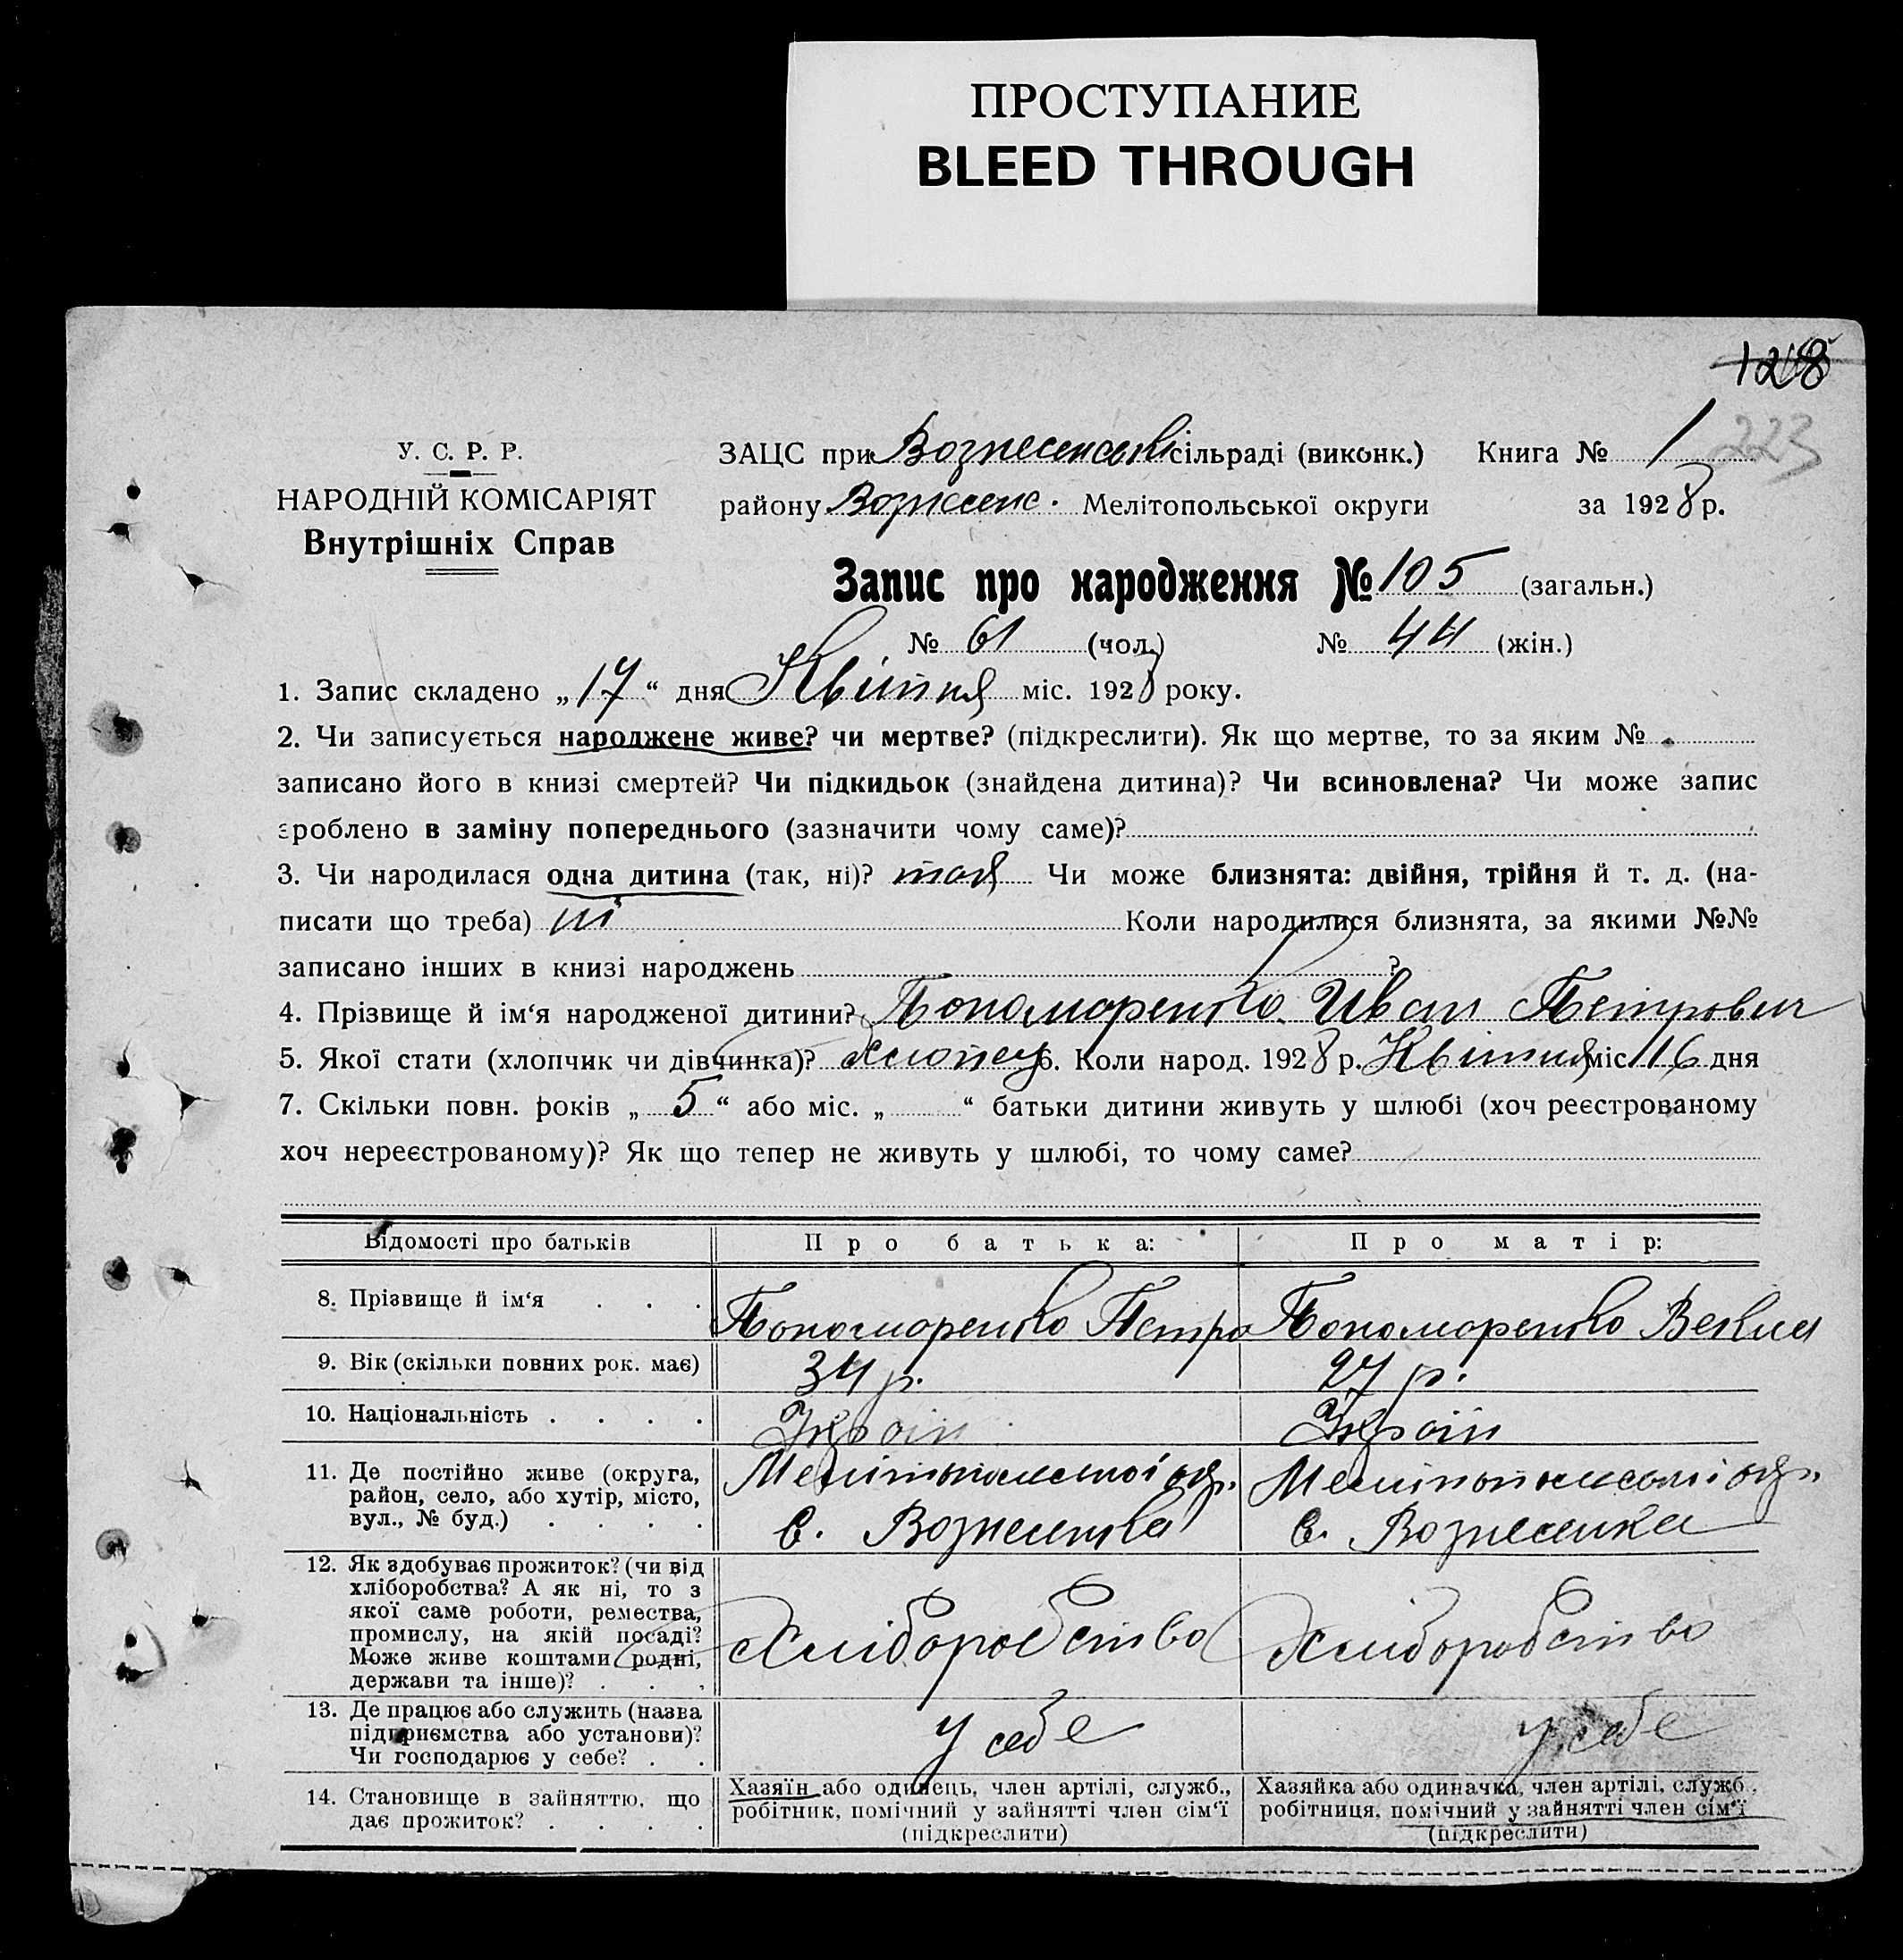 ПРОСТУПАНИЕ
BLEED THROUGH
128
223
У. С. Р. Р.
НАРОДНІЙ КОМІСАРІЯТ
Внутрішніх Справ
ЗАЦС при Вознесенській сільраді (виконк.) Книга № 1
району Вознесенс. Мелітопольської округи за 1928 р.
Запис про народження № 105 (загальн.)
№ 61 (чол.) № 44 (жін.)
1. Запис складено „17“ дня Квітня міс. 1928 року.
2. Чи записується народжене живе? чи мертве? (підкреслити). Як що мертве, то за яким №
записано його в книзі смертей? Чи підкидьок (знайдена дитина)? Чи всиновлена? Чи може запис
зроблено в заміну попереднього (зазначити чому саме)?
3. Чи народилася одна дитина (так, ні)? так Чи може близнята: двійня, трійня й т. д. (на-
писати що треба) ні Коли народилися близнята, за якими №№
записано інших в книзі народжень ?
4. Прізвище й ім‘я народженої дитини? Пономаренко Иван Петрович
5. Якої стати (хлопчик чи дівчинка)? Хлопец 6. Коли народ. 1928 р. Квітня міс 16 дня
7. Скільки повн. років „ 5 “ або міс. „ “ батьки дитини живуть у шлюбі (хоч реєстрованому
хоч нереєстрованому)? Як що тепер не живуть у шлюбі, то чому саме?
Відомості про батьків Про батька: Про матір:
8. Прізвище й ім‘я . . . Пономаренко Петро Пономаренко
9. Вік (скільки повних рок. має) 34 р. 27 р.
10. Національність . . . . Україн Україн
11. Де постійно живе (округа,
район, село, або хутір, місто,
вул., № буд.) . . . .
Мелітопольської окр. Мелітопольської окр.
с. Вознесенка с. Вознесенка
12. Як здобуває прожиток? (чи від
хліборобства? А як ні, то з
якої саме роботи, ремества,
промислу, на якій посаді?
Може живе коштами родні,
держави та інше)? . . .
Хліборобство Хліборобство
13. Де працює або служить (назва
підприємства або установи)?
Чи господарює у себе? . .
у себе у себе
14. Становище в зайняттю, що
дає прожиток? . . . .
Хазяїн або одинець, член артілі, служб.,
робітник, помічний у зайнятті член сім‘ї
(підкреслити)
Хазяйка або одиначка, член артілі, служб.,
робітниця, помічний у зайнятті член сім‘ї
(підкреслити)